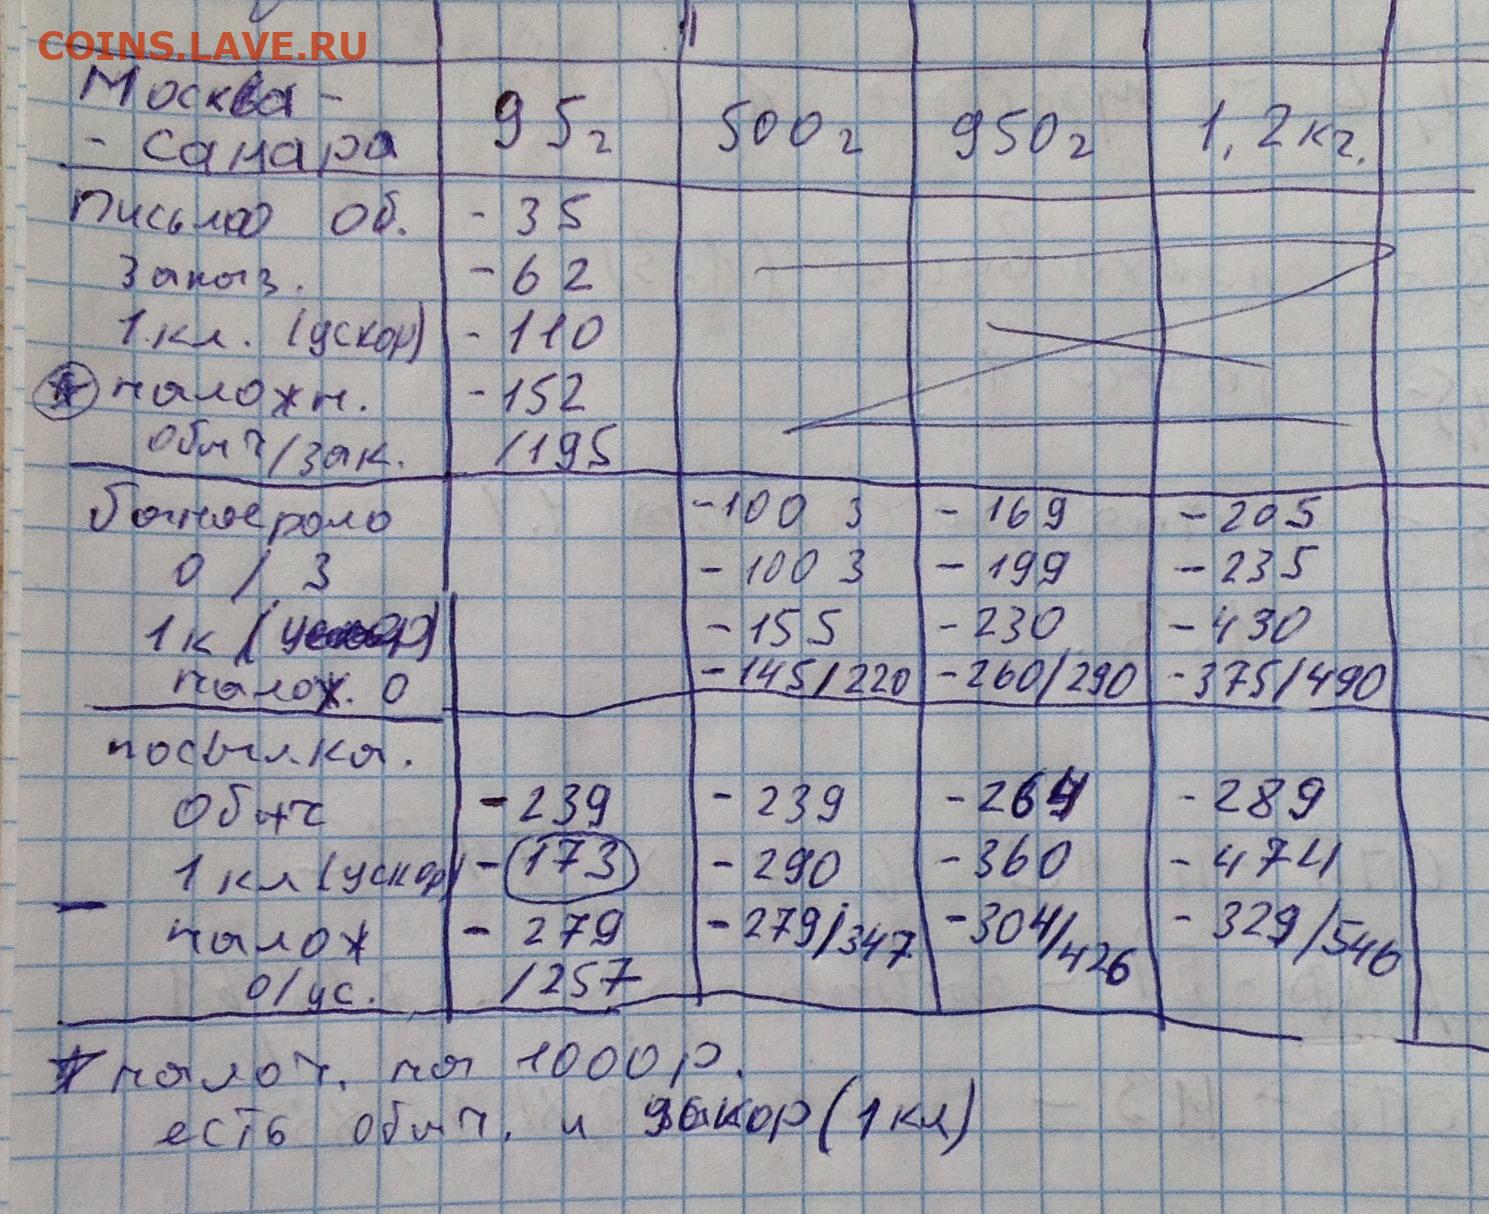 COINS.LAVE.RU
Москва - 95г 500г 950г 1,2кг.
- Самара
письмо об. - 35
заказ. - 62
1 кл. (ускор) - 110
* налож н. - 152
обыч/зак. /195
бандероль - 100 з - 169 - 205
0 / З - 100 з - 199 - 235
1к (ускор) - 155 - 230 - 430
налож. 0 - 145/220 - 260/290 - 375/490
посылка.
обыч - 239 - 239 - 264 - 289
1 кл (ускор) - 173 - 290 - 360 - 474
- налож - 279 - 279/347 - 304/426 - 329/546
о/ус. /257
* налож. на 1000 р.
есть обыч. и (1 кл)